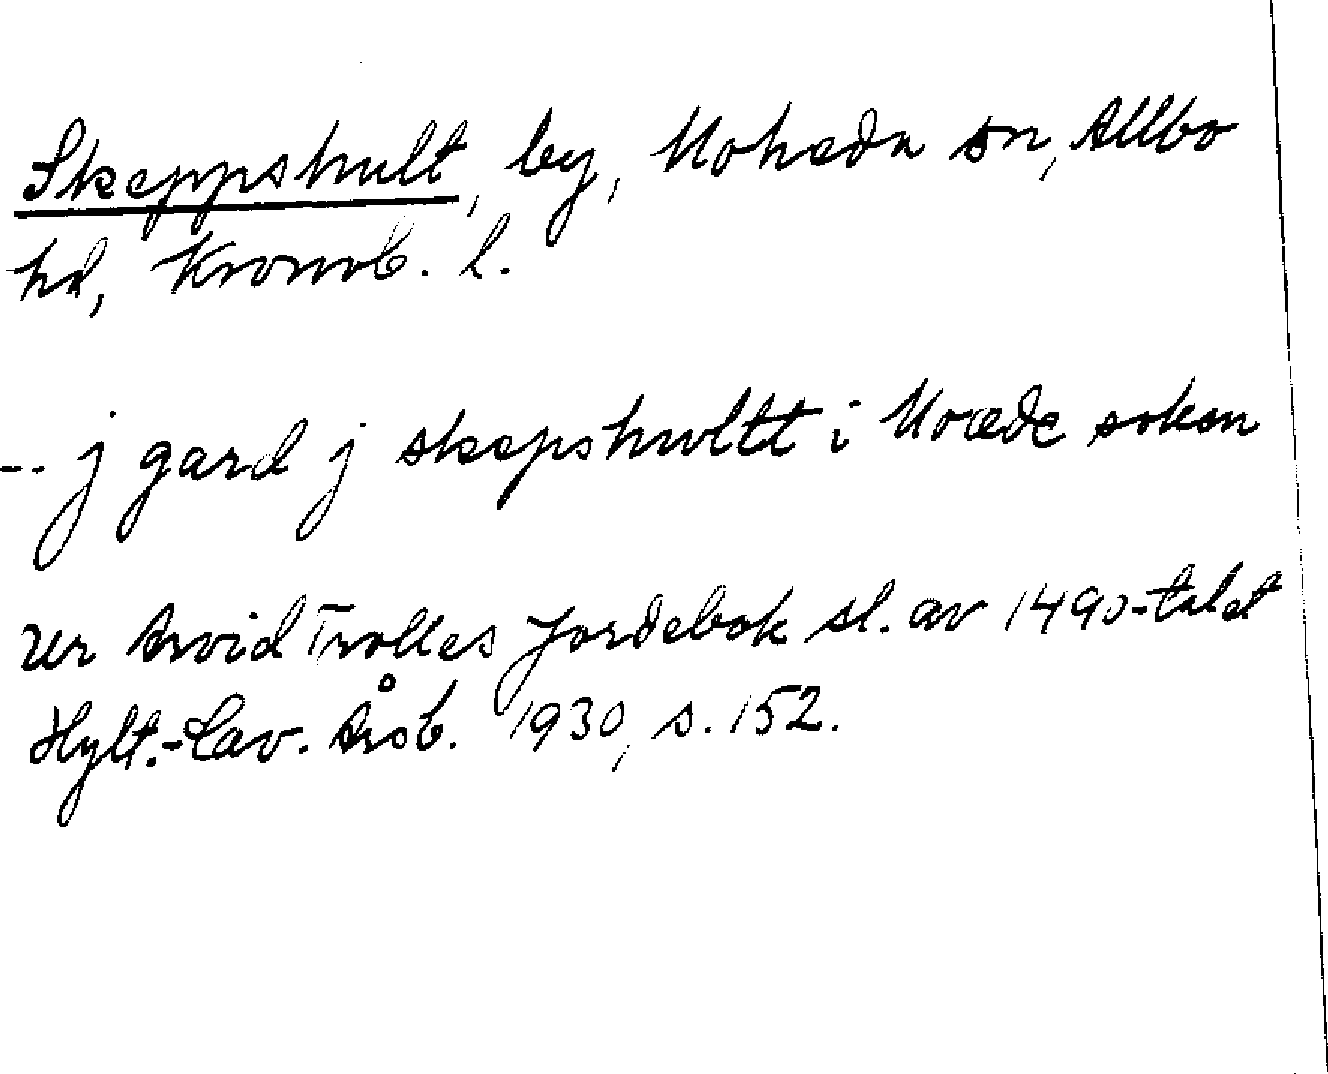 Skeppshult, by, Moheda sn, Allbo
hd, Kronob. l.
-- j gard j skepshwltt i Moæde soken
Ur Arvid Trolles Jordebok sl. av 1490-talet
Hylt.-Cav. Årsb. 1930, s. 152.